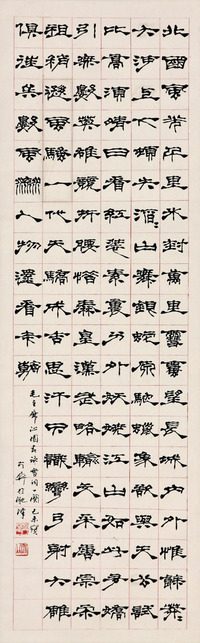 北國風光千里冰封萬里雪飄望長城內外惟餘莽
大河上下頓失滔滔山舞銀蛇原馳蠟象欲與天公試
比高須晴日看紅裝素裹分外妖嬈江山如此多嬌
引無數英雄競折腰惜秦皇漢武略輸文采唐宗宋
祖稍遜風騷一代天驕成吉思汗只識彎弓射大雕
俱往矣數風流人物還看今朝
毛主席沁園春詠雪詞一闋己未